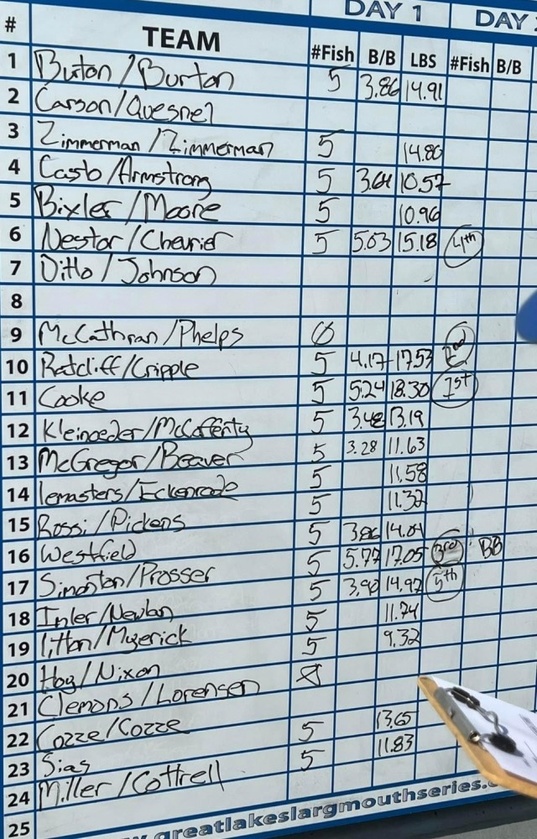 DAY 1 DAY
# TEAM #Fish B/B LBS #Fish B/B
1 Burton/Burton 5 3.86 14.91
2 Carson/Quesnel
3 Zimmerman/Zimmerman 5 14.80
4 Casto/Armstrong 5 3.64 10.57
5 Bixler/Moore 5 10.96
6 Nestor/Chevrier 5 5.03 15.18 4th
7 Ditto/Johnson
8
9 McCathran/Phelps 0
10 Ratcliff/Cripple 5 4.17 17.53 2nd
11 Cooke 5 5.24 18.30 1st
12 Kleinoeder/McCafferty 5 3.48 13.19
13 McGregor/Beaver 5 3.28 11.63
5 11.58
14 Lemasters/Eckenrode 5 11.32
15 Rossi/Pickens 5 3.86 14.01
16 Westfield 5 5.77 17.05 3rd BB
17 Simonton/Prosser 5 3.90 14.97 5th
18 Inler/Newlon 5 11.74
19 Litton/Myerick 5 9.32
20 Hog/Nixon
21 Clemons/Lorensen
22 Cozze/Cozze 5 13.65
23 Sias 5 11.83
24 Miller/Cottrell
25
greatlakeslargmouthseries.